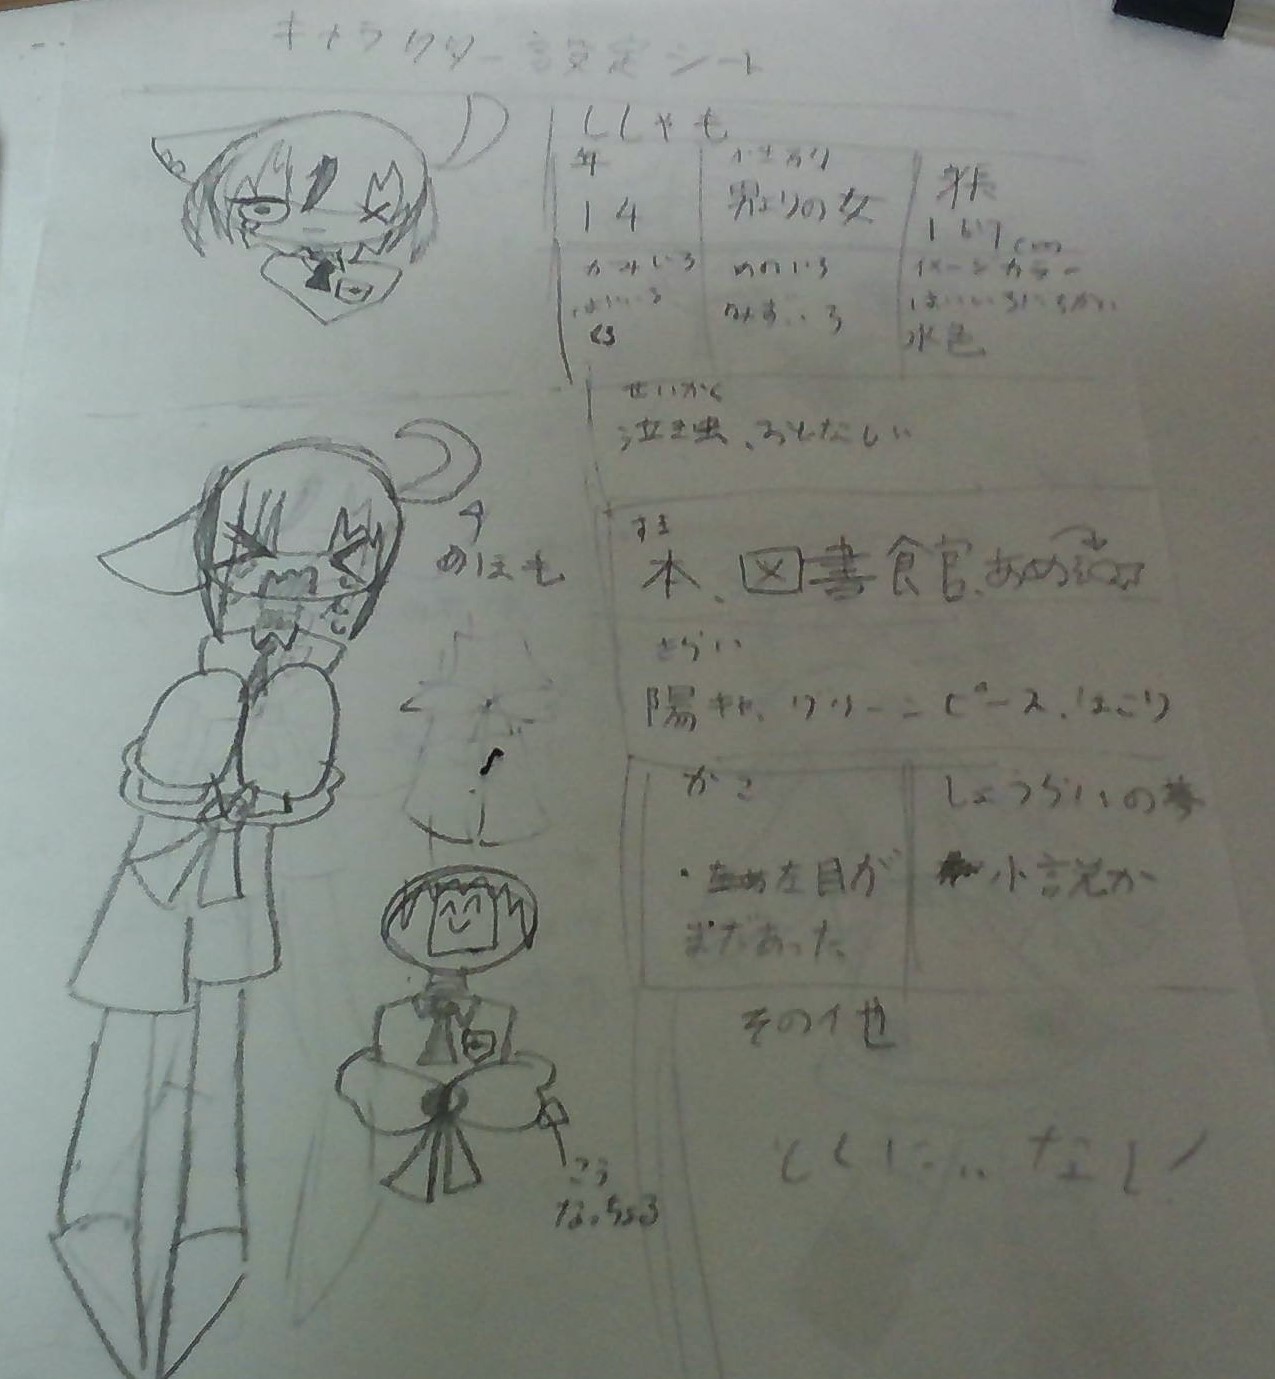 キャラクター設定シート
ししゃも
年
14
男よりの女
身長
167cm
かみいろ
はいいろ
めのいろ
みずいろ
イメージカラー
はいいろにちかい
水色
せいかく
泣き虫、おとなしい
すき
本、図書館、あめ
きらい
陽キャ、グリーンピース、ほこり
かこ
・左目が
まだあった
しょうらいの夢
小説か
その他
とくに... なし!
あほも
こう
なっちょる